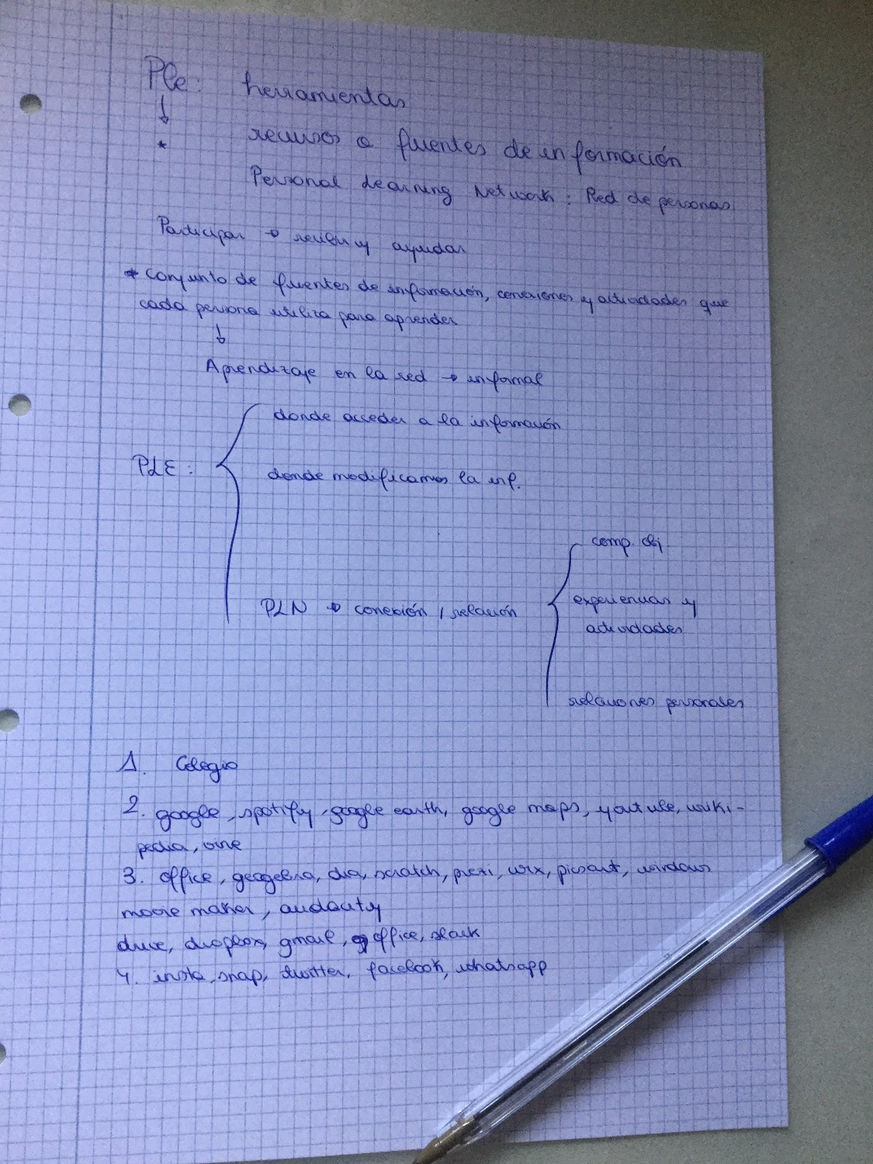 PLe: herramientas
↓
* recursos o fuentes de información
Personal Learning Network: Red de personas
Participar → recibir y ayudar
* conjunto de fuentes de información, conexiones y actividades que
cada persona utiliza para aprender
↓
Aprendizaje en la red → informal
donde acceder a la información
PLE:
donde modificamos la inf.
comp. obj
PLN → conexión / relación
experiencias y
actividades
relaciones personales
1. Colegio
2. google, spotify, google earth, google maps, youtube, wiki-
pedia, vine
3. office, geogebra, dia, scratch, prezi, wix, picsart, windows
moove maker, audacity
drive, dropbox, gmail, office, slack
4. insta, snap, twitter, facebook, whatsapp